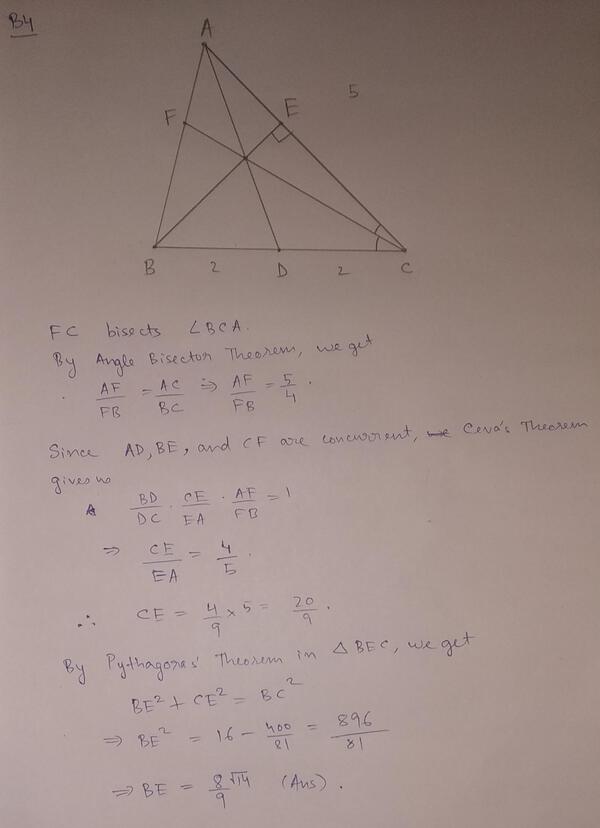 B4
A
F
E
5
B
2
D
2
C
FC bisects ∠BCA.
By Angle Bisector Theorem, we get
AF/FB = AC/BC ⇒ AF/FB = 5/4.
Since AD, BE, and CF are concurrent, Ceva's Theorem
gives us
BD/DC · CE/EA · AF/FB = 1
⇒ CE/EA = 4/5.
∴ CE = 4/9 × 5 = 20/9.
By Pythagoras' Theorem in △BEC, we get
BE² + CE² = BC²
⇒ BE² = 16 − 400/81 = 896/81
⇒ BE = 8√14/9 (Ans).